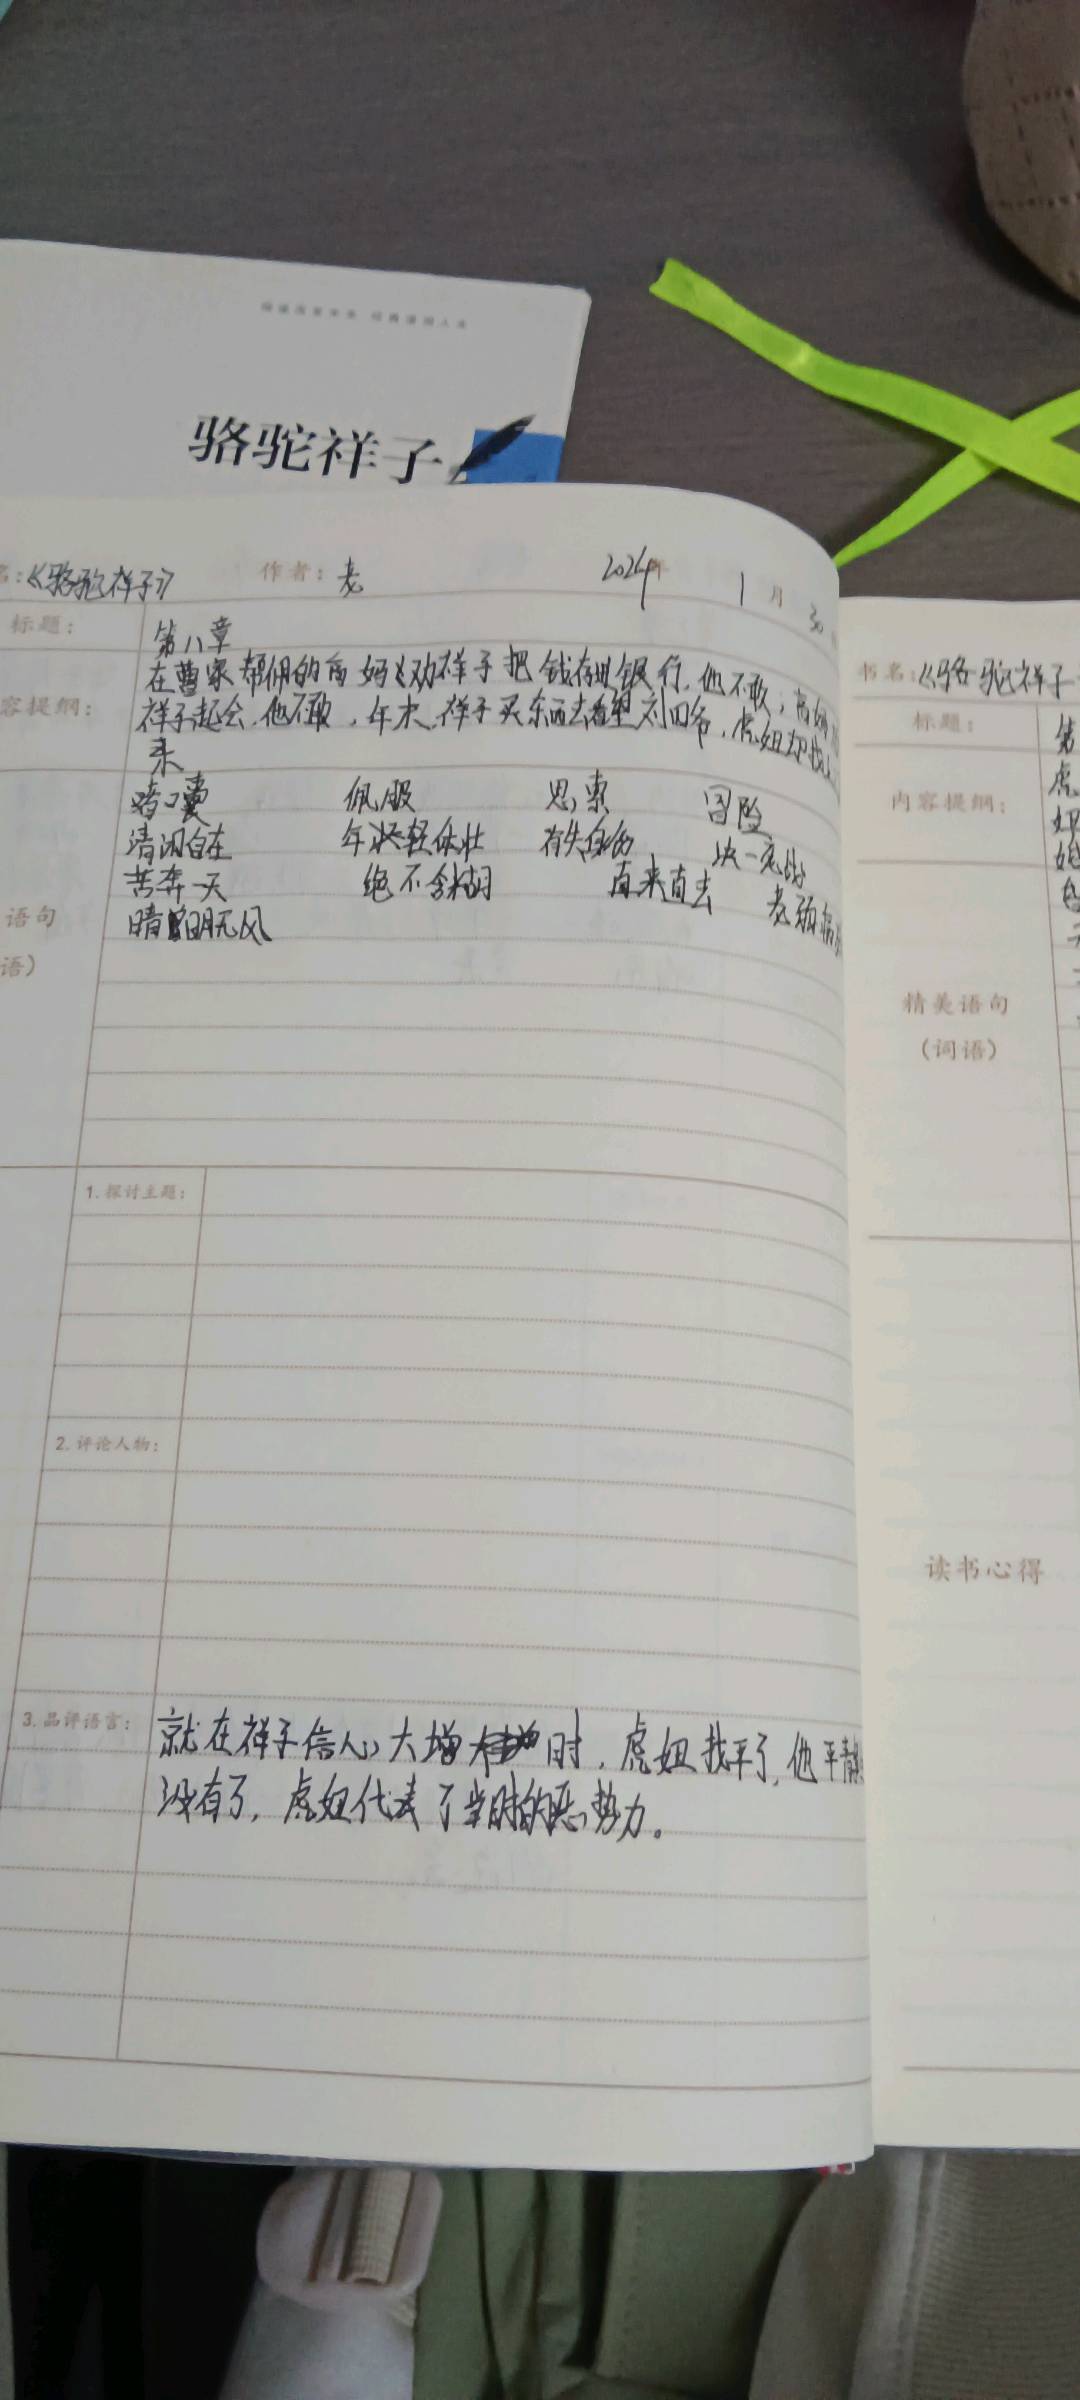 骆驼祥子
名:《骆驼祥子》 作者: 老 2024年 1月30
标题: 第八章
容提纲: 在曹家帮佣的高妈劝祥子把钱存进银行,他不敢;高妈
祥子起会,他不敢,年末,祥子买东西去看望刘四爷,虎妞却找上
来
嘟囔 佩服 思索 冒险
清闲自在 年轻体壮 有失自的
苦奔一天 绝不含糊 直来直去 老弱病
晴明无风
语句
语)
1. 探讨主题:
2. 评论人物:
3. 品评语言: 就在祥子信心大增时,虎妞找来了,他平静
没有了,虎妞代表了当时的恶势力。
书名:《骆驼祥子
标题: 第
内容提纲: 虎
妞
精美语句
(词语)
读书心得